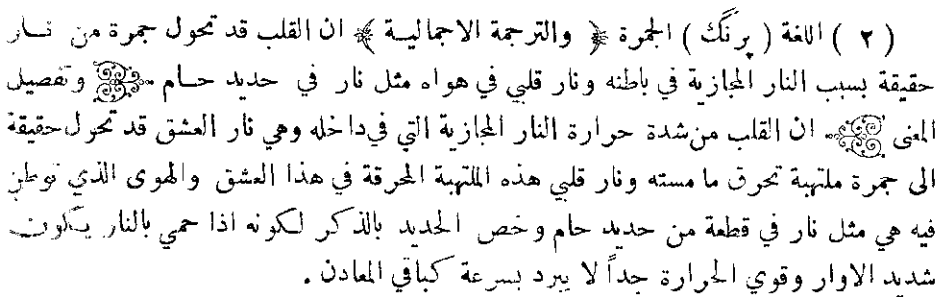 ( ٢ ) اللغة ( پرنگ ) الجمرة ﴿ والترجمة الاجمالية ﴾ ان القلب قد تحول جمرة من نار
حقيقة بسبب النار المجازية في باطنه ونار قلبي في هواه مثل نار في حديد حام وتفصيل
المعنى ان القلب من شدة حرارة النار المجازية التي في داخله وهي نار العشق قد تحول حقيقة
الى جمرة ملتهبة تحرق ما مسته ونار قلبي هذه الملتهبة المحرقة في هذا العشق والهوى الذي توطن
فيه هي مثل نار في قطعة من حديد حام وخص الحديد بالذكر لكونه اذا حمي بالنار يكون
شديد الاوار وقوي الحرارة جداً لا يبرد بسرعة كباقي المعادن .